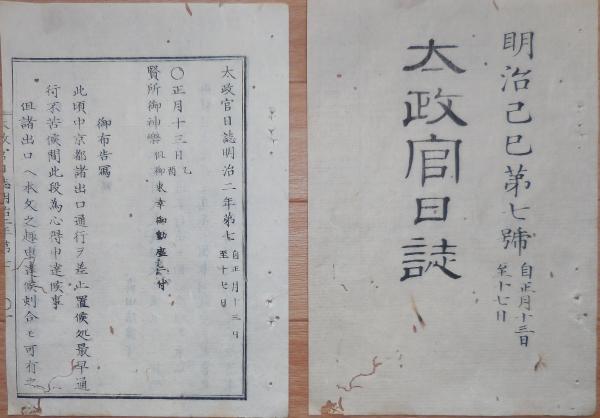 明治己巳第七號 自正月十三日 至十七日
太政官日誌
太政官日誌明治二年第七 自正月十三日 至十七日
○正月十三日 乙酉
賢所御神樂 但御東幸御動座ニ付
御布告寫
此頃中京都諸出口通行ヲ差止置候処最早通
行不苦候間此段為心得申達候事
但諸出口ヘ本文之趣申達候刻合モ可有之